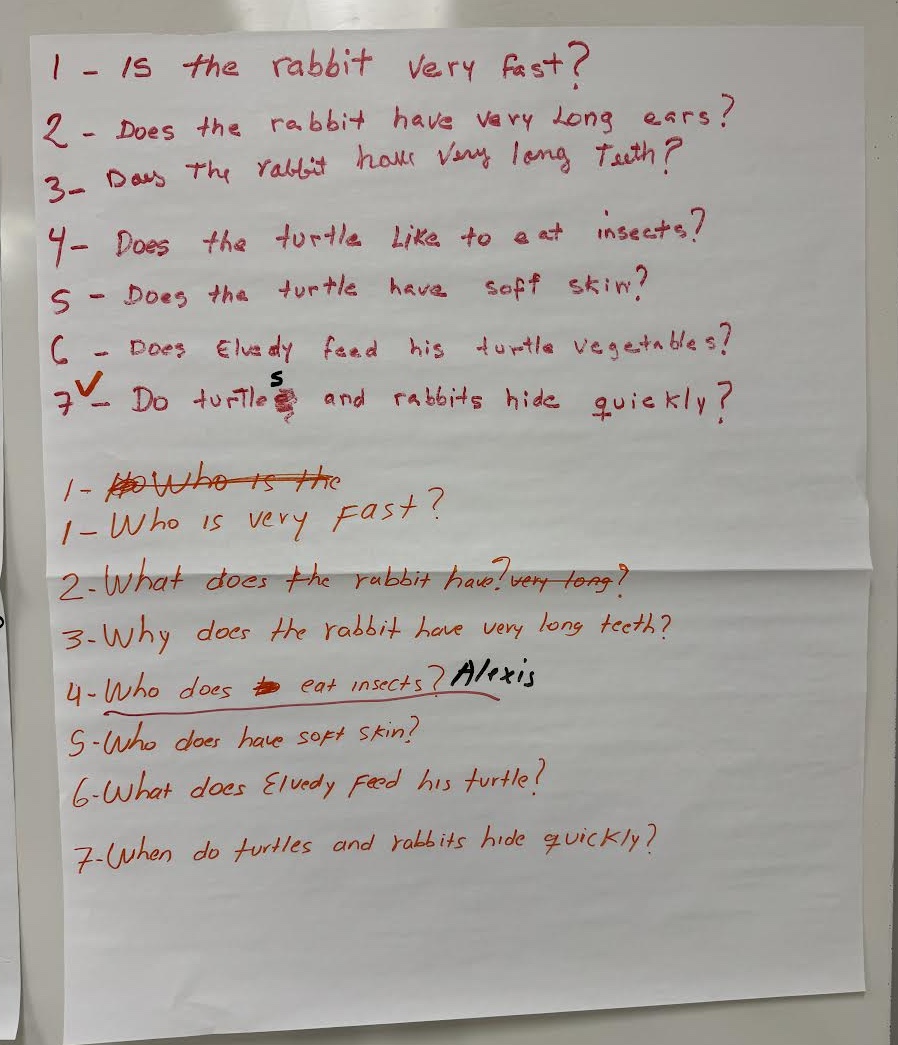 1 - Is the rabbit very fast?
2 - Does the rabbit have very Long ears?
3- Does The rabbit have Very long Teeth?
4- Does the turtle Like to eat insects?
5 - Does the turtle have soft skin?
6 - Does Elvedy feed his turtle vegetables?
7 ✓- Do turtles and rabbits hide quickly?
1- Who is the
1- Who is very Fast?
2- What does the rabbit have? very long?
3- Why does the rabbit have very long teeth?
4- Who does to eat insects? Alexis
5- Who does have soft skin?
6- What does Elvedy Feed his turtle?
7- When do turtles and rabbits hide quickly?